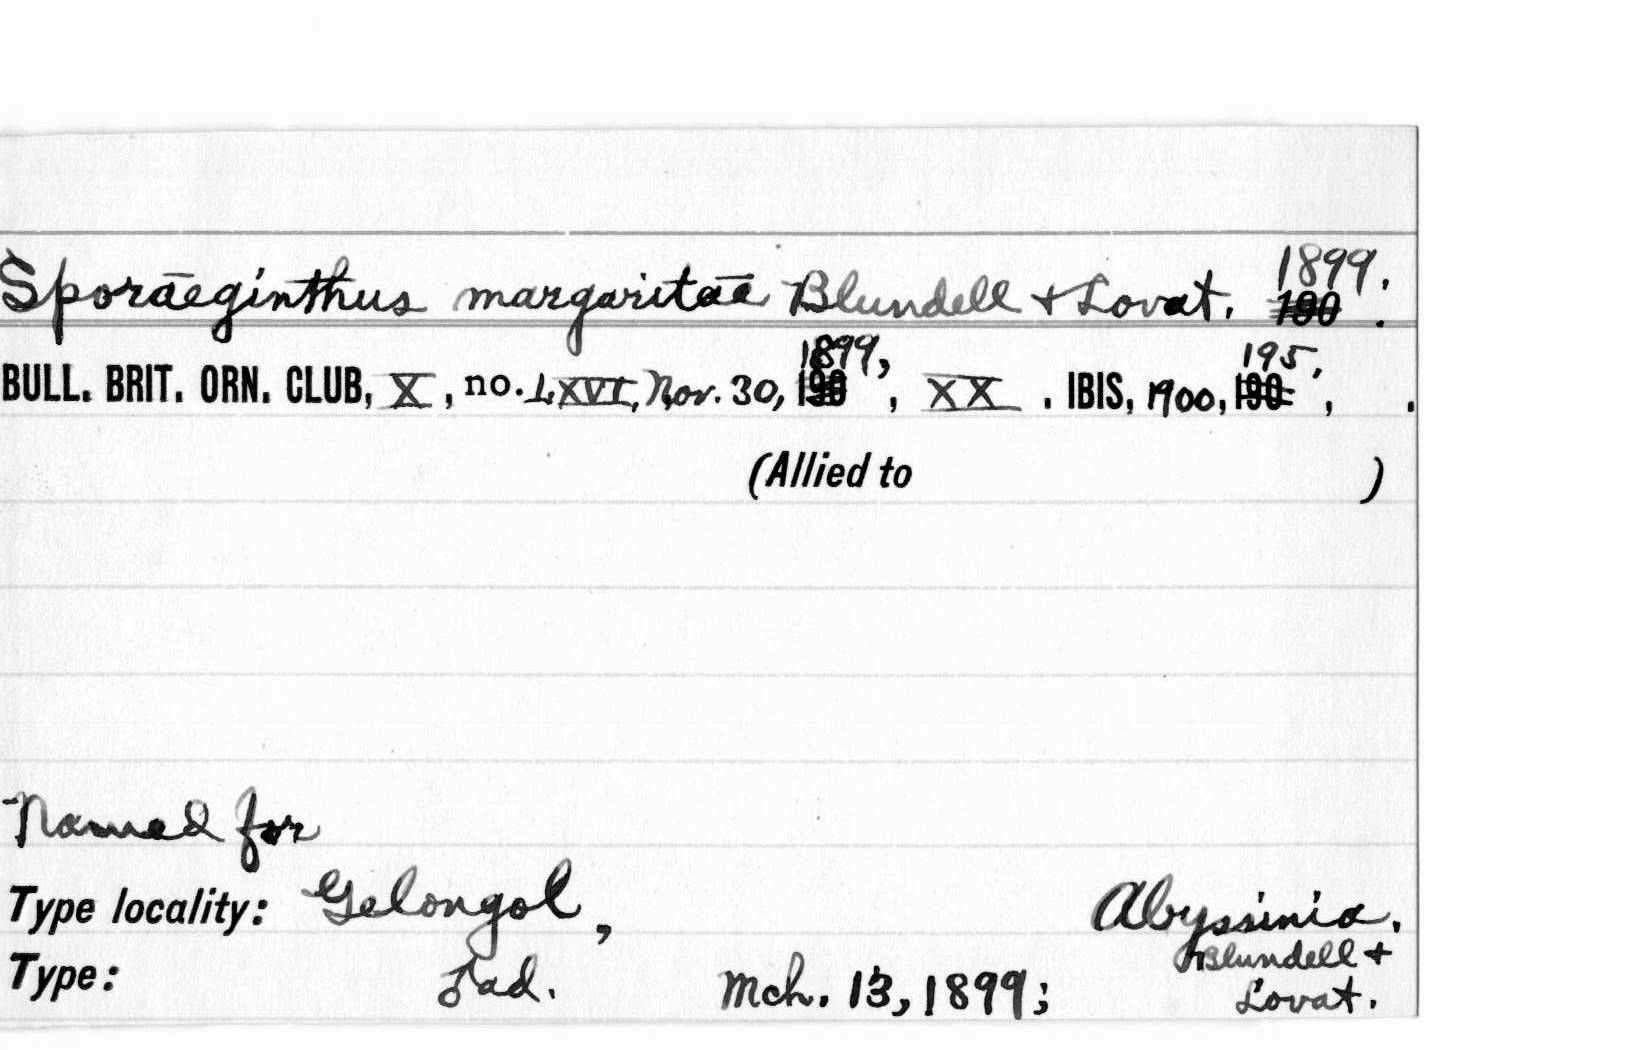 Sporāeginthus margaritāe Blundell + Lovat. 1899.
190 .
BULL. BRIT. ORN. CLUB, X, no. LXVI, Nov. 30, 1899, 190 , XX . IBIS, 1900, 195, 190 , .
(Allied to )
Named for
Type locality: Gelongol, Abyssinia.
Type: ad. Mch. 13, 1899; Blundell +
Lovat.